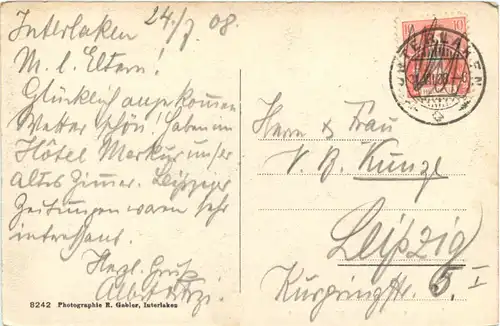 Interlaken 24/7 08.
M. l. Eltern!
Glücklich angekommen
Wetter schön! Haben im
Hôtel Merkur unser
altes Zimmer. Leipziger
Zeitungen waren sehr
interessant.
Herzl. Gruß
10
INTERLAKEN
Herrn & Frau
Kunze
Leipzig
5 I
9242 Photographie R. Gabler, Interlaken